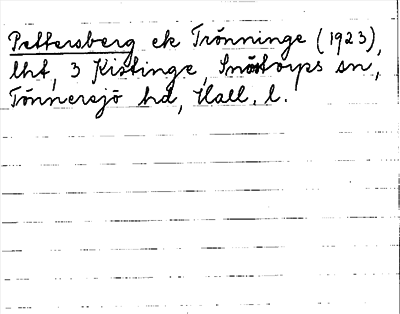 Pettersberg ek Trönninge (1923),
lht, 3 Kistinge, Snöstorps sn,
Tönnersjö hd, Hall. l.